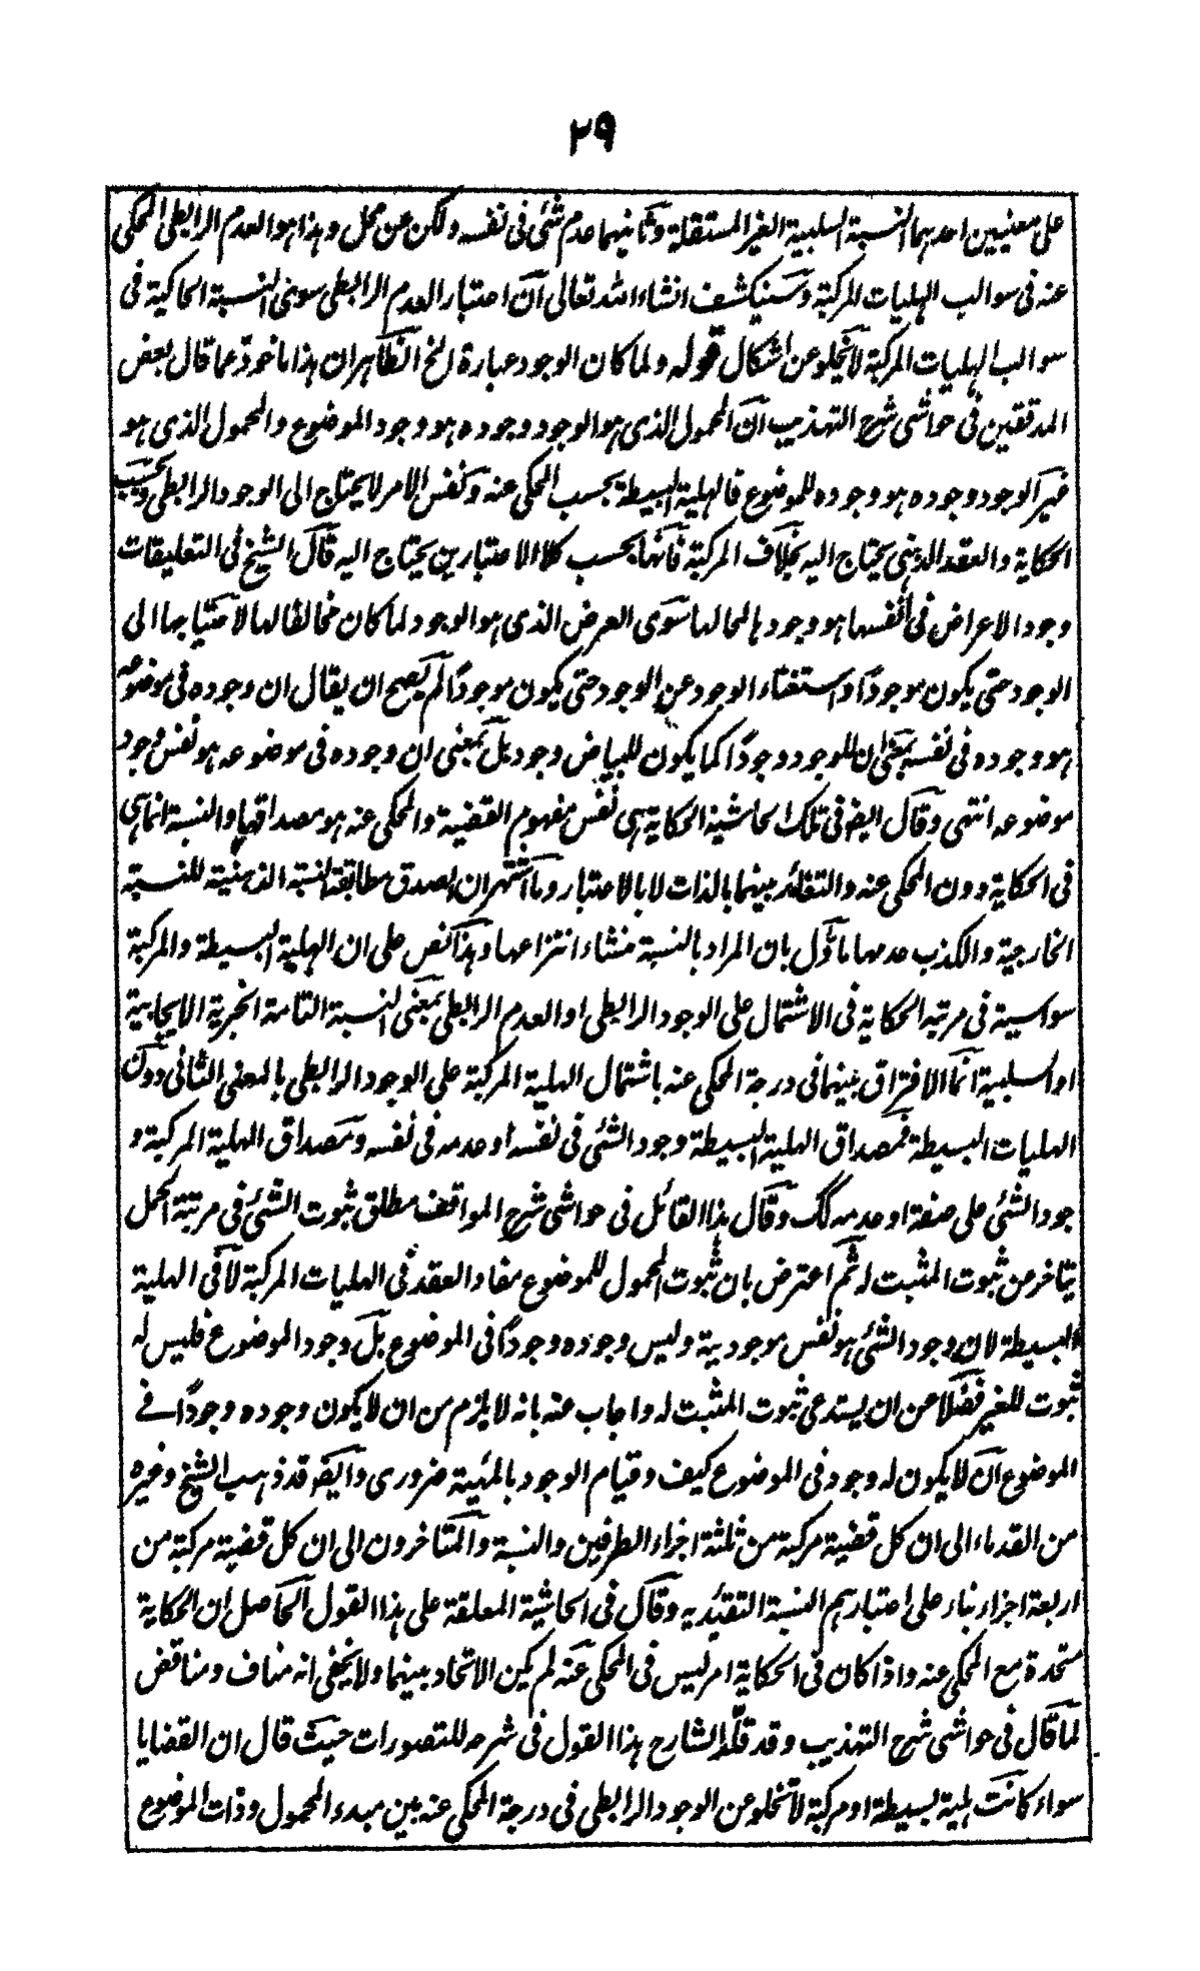 ٢٩
على معنيين احدهما النسبة السلبية الغير المستقلة وثانيهما عدم شئ فى نفسه ولكن عن محل وهذا هو العدم الرابطى المحكى
عنه فى سوالب الهليات المركبة وسينكشف انشاء الله تعالى ان اعتبار العدم الرابطى سوى النسبة الحاكية فى
سوالب الهليات المركبة لا يخلو عن اشكال قوله ولما كان الوجود عبارة الخ الظاهر ان هذا ماخوذ عما قال بعض
المدققين فى حواشى شرح التهذيب ان المحمول الذى هو الوجود وجوده هو وجود الموضوع والمحمول الذى هو
غير الوجود وجوده هو وجوده للموضوع فالهلية البسيطة بحسب المحكى عنه ونفس الامر لا يحتاج الى الوجود الرابطى وبحسب
الحكاية والعقد الذهنى يحتاج اليه بخلاف المركبة فانها بحسب كلا الاعتبارين يحتاج اليه قال الشيخ فى التعليقات
وجود الاعراض فى انفسها هو وجودها لمحالها سوى العرض الذى هو الوجود لما كان مخالفا لها لاحتياجها الى
الوجود حتى يكون موجودًا واستغناء الوجود عن الوجود حتى يكون موجودًا لم يصح ان يقال ان وجوده فى موضوعه
هو وجوده فى نفسه بمعنى ان للوجود وجودًا كما يكون للبياض وجود بل بمعنى ان وجوده فى موضوعه هو نفس وجود
موضوعه انتهى وقال ايضا فى تلك الحاشية الحكاية هى نفس مفهوم القضية والمحكى عنه هو مصداقها والنسبة انما هى
فى الحكاية دون المحكى عنه والتغائر بينهما بالذات لا بالاعتبار وما اشتهر ان الصدق مطابقة النسبة الذهنية للنسبة
الخارجية والكذب عدمها ماؤل بان المراد بالنسبة منشاء انتزاعها وهذا نص على ان الهلية البسيطة والمركبة
سواسية فى مرتبة الحكاية فى الاشتمال على الوجود الرابطى او العدم الرابطى بمعنى النسبة التامة الخبرية الايجابية
او السلبية انما الافتراق بينهما فى درجة المحكى عنه باشتمال الهلية المركبة على الوجود الرابطى بالمعنى الثانى دون
الهليات البسيطة فمصداق الهلية البسيطة وجود الشئ فى نفسه او عدمه فى نفسه ومصداق الهلية المركبة و
جود الشئ على صفة او عدمه كك وقال هذا القائل فى حواشى شرح المواقف مطلق ثبوت الشئ فى مرتبة الحمل
يتاخر عن ثبوت المثبت له ثم اعترض بان ثبوت المحمول للموضوع مفاد العقد فى الهليات المركبة لا فى الهلية
البسيطة لان وجود الشئ هو نفس موجودية وليس وجوده وجودًا فى الموضوع بل وجود الموضوع فليس له
ثبوت للغير فضلا عن ان يستدعى ثبوت المثبت له واجاب عنه بانه لا يلزم من ان لا يكون وجوده وجودًا فے
الموضوع ان لا يكون له وجود فى الموضوع كيف وقيام الوجود بالمئية ضرورى وايضا قد ذهب الشيخ وغيره
من القدماء الى ان كل قضية مركبة من ثلثة اجزاء الطرفين والنسبة والمتاخرون الى ان كل قضية مركبة من
اربعة اجزاء بناء على اعتبارهم النسبة التقئديه وقال فى الحاشية المعلقة على هذا القول الحاصل ان الحكاية
متحدة مع المحكى عنه واذا كان فى الحكاية امر ليس فى المحكى عنه لم يكن الاتحاد بينهما ولا يخفى انه مناف ومناقض
لما قال فى حواشى شرح التهذيب وقد قلّد الشارح هذا القول فى شرحه للتصورات حيث قال ان القضايا
سواء كانت هلية بسيطة او مركبة لا تخلو عن الوجود الرابطى فى درجة المحكى عنه بين مبدء المحمول وذات الموضوع